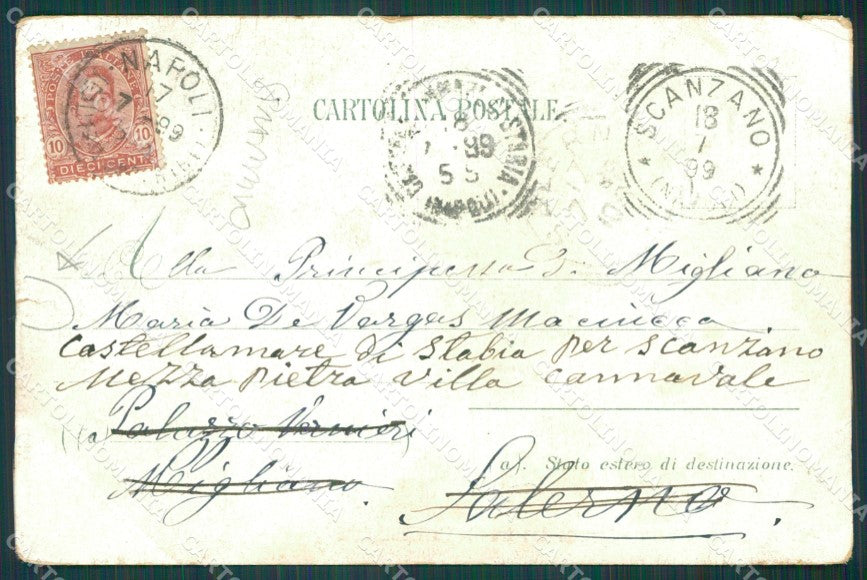 NAPOLI
17
7
99
10 10
DIECI CENT.
CARTOLINA POSTALE
STABIA
18
7 99
5 S
(NAPOLI)
SCANZANO
18
7
99
(NAPOLI)
Alla Principessa di Migliano
Maria De Vargas Macciucca
Castellamare di Stabia per Scanzano
Mezza pietra villa cannavale
Palazzo Vernieri
Migliano
(a). Stato estero di destinazione.
Salerno.
CARTOLINOMANIA